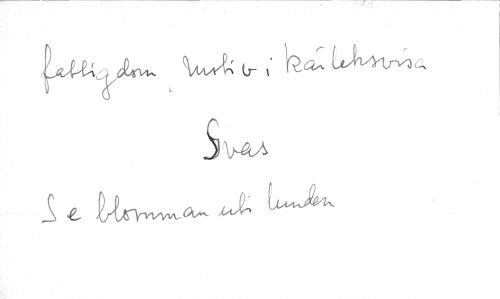 fattigdom, motiv i kärleksvisa
Svas
Se blomman uti lunden